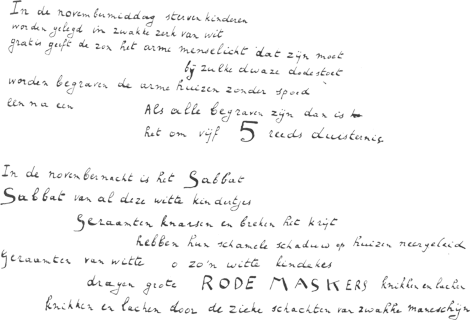 In de novembermiddag sterven kinderen
worden gelegd in zwakke zerk van wit
gratis geeft de zon het arme menselicht dat zijn moet
bij zulke dwaze dodestoet
worden begraven de arme huizen zonder spoed
een na een Als alle begraven zijn dan is
het om vijf 5 reeds duisternis
In de novembernacht is het Sabbat
Sabbat van al deze witte kindertjes
Geraamten knarsen en breken het krijt
hebben hun schamele schaduw op huizen neergeleid
Geraamten van witte o zo'n witte kindekes
dragen grote RODE MASKERS knikken en lachen
knikken en lachen door de zieke schachten van zwakke maneschijn